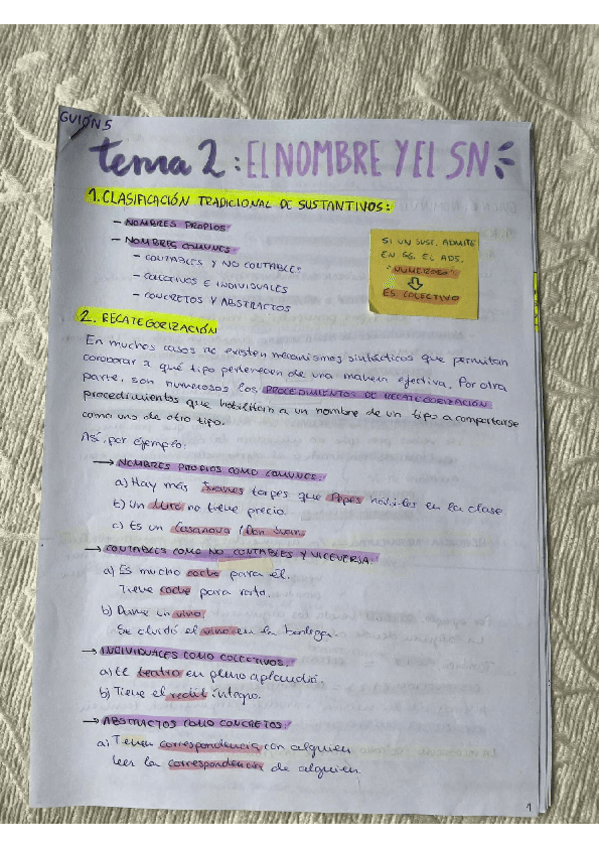 GUION 5
tema 2: EL NOMBRE Y EL SN
1. CLASIFICACIÓN TRADICIONAL DE SUSTANTIVOS:
- NOMBRES PROPIOS
- NOMBRES COMUNES
- CONTABLES Y NO CONTABLES
- COLECTIVOS E INDIVIDUALES
- CONCRETOS Y ABSTRACTOS
SI UN SUST. ADMITE
EN SG. EL ADJ.
"NUMEROSO"
ES COLECTIVO
2. RECATEGORIZACIÓN
En muchos casos no existen mecanismos sintácticos que permitan
coroborar a qué tipo pertenecen de una manera efectiva. Por otra
parte, son numerosos los PROCEDIMIENTOS DE RECATEGORIZACIÓN
procedimientos que habilitan a un nombre de un tipo a comportarse
como uno de otro tipo.
Así, por ejemplo:
→ NOMBRES PROPIOS COMO COMUNES.
a) Hay más Juanes torpes que Pepes hábiles en la clase.
b) Un no tiene precio.
c) Es un Casanova / don Juan.
→ CONTABLES COMO NO CONTABLES Y VICEVERSA.
a) Es mucho coche para él.
Tiene coche para rato.
b) Dame un vino.
Se olvidó el vino en la bodega.
→ INDIVIDUALES COMO COLECTIVOS.
a) El teatro en pleno aplaudió.
b) Tiene el redil íntegro.
→ ABSTRACTOS COMO CONCRETOS.
a) Tener correspondencia con alguien
Leer la correspondencia de alguien
1